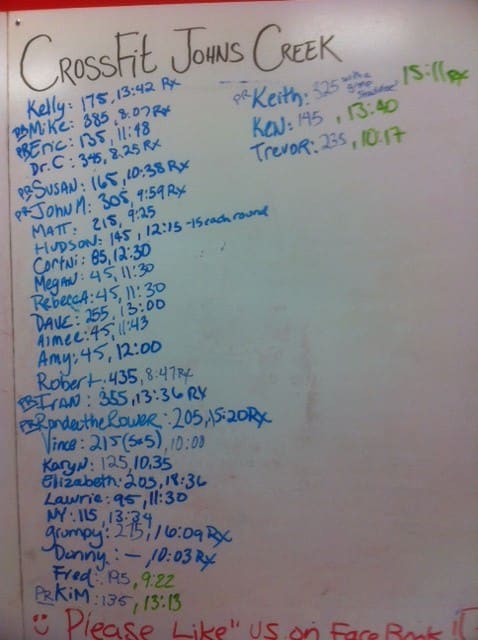 CROSSFIT JOHNS CREEK
Kelly: 175, 13:42 Rx
PR Mike: 385, 8:07 Rx
PR Eric: 135, 11:48
Dr. C: 345, 8:25 Rx
PR SUSAN: 165, 10:38 Rx
PR JOHN M: 305, 9:59 Rx
MATT: 215, 9:25
HUDSON: 145, 12:15 -15 each round
Cortni: 85, 12:30
Megan: 45, 11:30
Rebecca: 45, 11:30
DAVE: 255, 13:00
Aimee: 45, 11:43
Amy: 45, 12:00
Robert: 435, 8:47 Rx
PR IRAN: 355, 13:36 RX
PR Rondeu the Rower: 205, 15:20 RX
Vince: 215 (5x5), 10:00
Karyn: 125, 10:35
Elizabeth: 205, 18:36
Lawrie: 95, 11:30
NY: 115, 13:34
grumpy: 275, 16:09 Rx
Danny: —, 10:03 Rx
Fred: 195, 9:22
PR KIM: 135, 13:13
PR Keith: 325 with a gimp shoulder! 15:11 Rx
KEN: 145, 13:40
TREVOR: 235, 10:17
Please Like" US on FaceBook!!